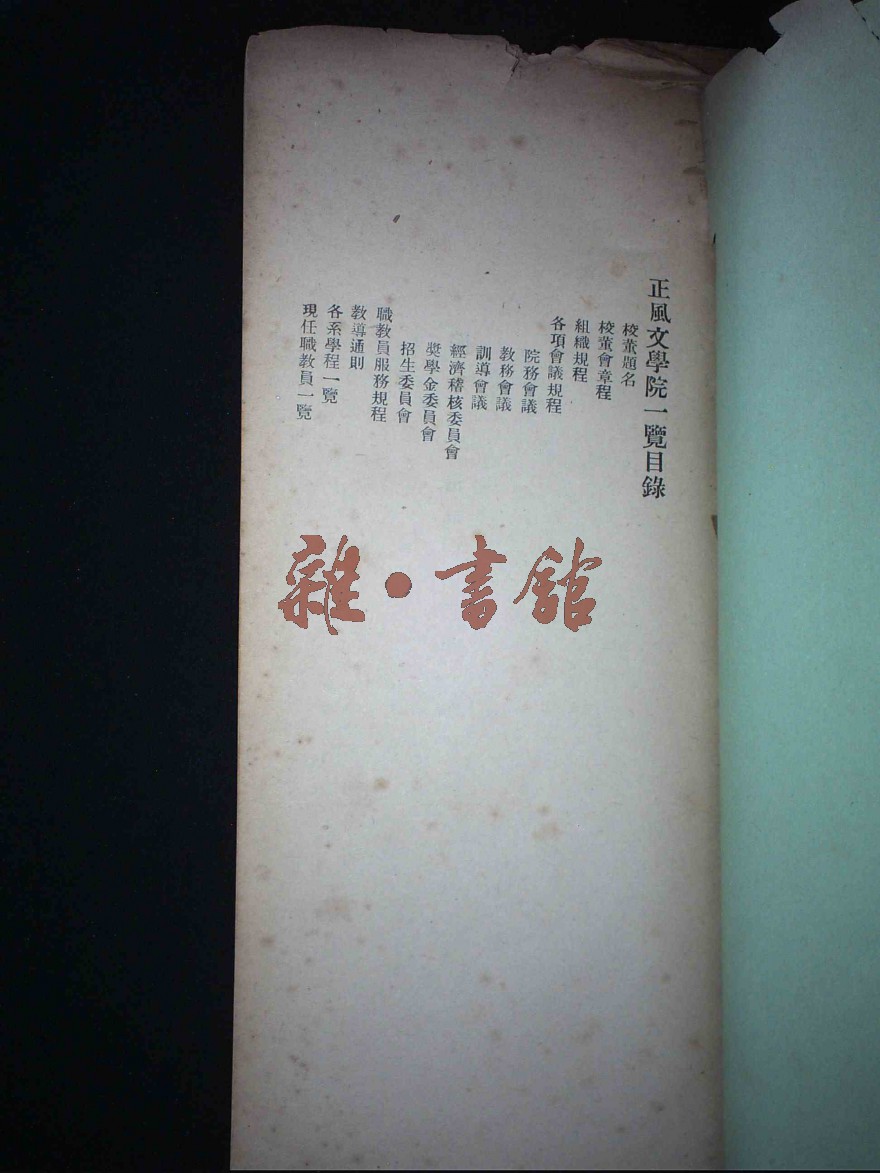 正風文學院一覽目錄
校董題名
校董會章程
組織規程
各項會議規程
院務會議
教務會議
訓導會議
經濟稽核委員會
獎學金委員會
招生委員會
職教員服務規程
教導通則
各系學程一覽
現任職教員一覽
雜·書館